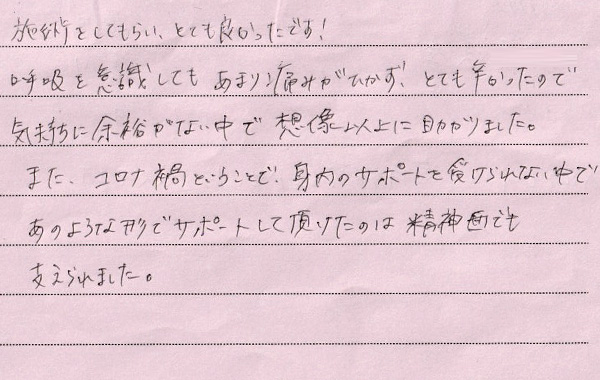 施術をしてもらい、とても良かったです!
呼吸を意識しても あまり痛みがひかず、とても辛かったので
気持ちに余裕がない中で 想像以上に助かりました。
また、コロナ禍ということで、身内のサポートを受けられない中で
あのような形でサポートして頂けたのは 精神面でも
支えられました。